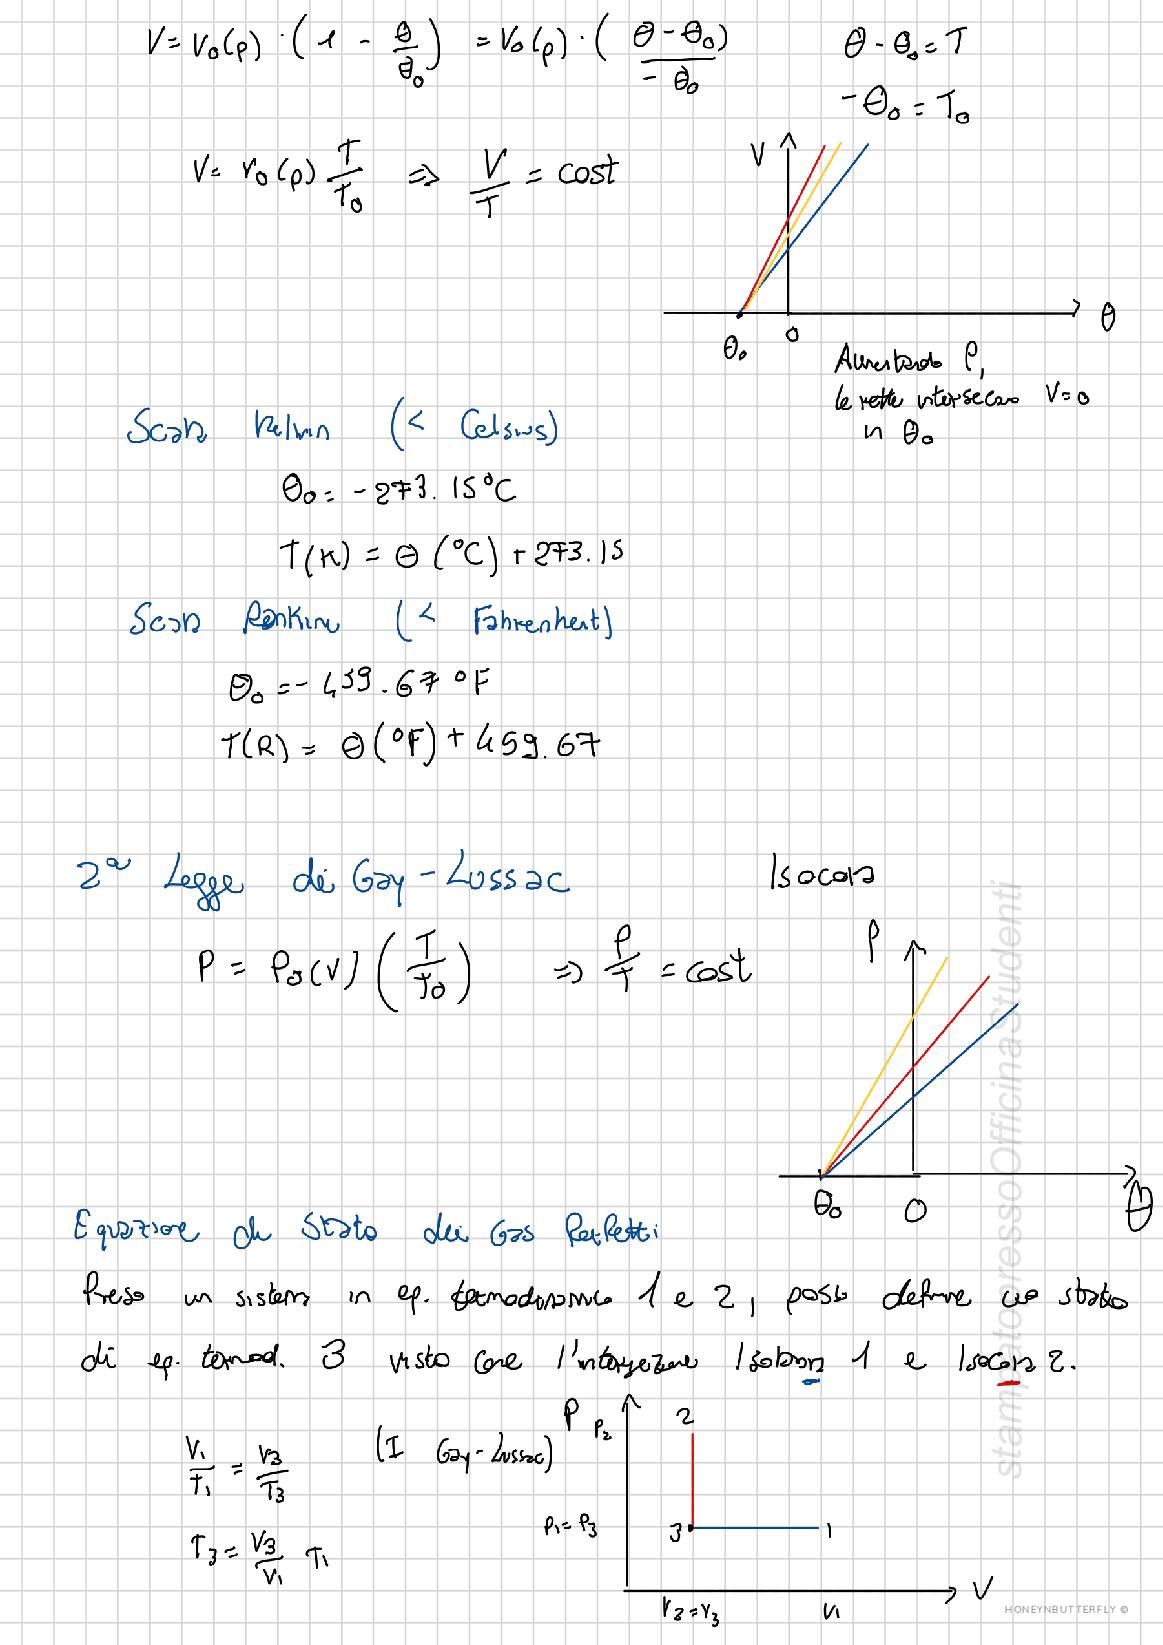 V = V₀(p) · (1 - θ/θ₀) = V₀(p) · ((θ - θ₀)/(-θ₀))
θ - θ₀ = T
-θ₀ = T₀
V = V₀(p) T/T₀ ⇒ V/T = cost
V
θ
θ₀
0
Aumentando P,
le rette intersecano V=0
in θ₀
Scala Kelvin (< Celsius)
θ₀ = -273.15°C
T(K) = θ(°C) + 273.15
Scala Rankine (< Fahrenheit)
θ₀ = -459.67 °F
T(R) = θ(°F) + 459.67
2ª Legge di Gay-Lussac
Isocora
P = P₀(V) (T/T₀) ⇒ P/T = cost
P
θ₀
0
θ
Equazione di Stato dei Gas Perfetti
Preso un sistema in eq. termodinamico 1 e 2, posso definire uno stato
di eq. termod. 3 visto come l'intersezione Isobara 1 e Isocora 2.
V₁/T₁ = V₃/T₃
(I Gay-Lussac)
T₃ = V₃/V₁ T₁
P
P₂
2
P₁ = P₃
3
1
V₂ = V₃
V₁
V
stampatopressoOfficinaStudenti
HONEYNBUTTERFLY ©